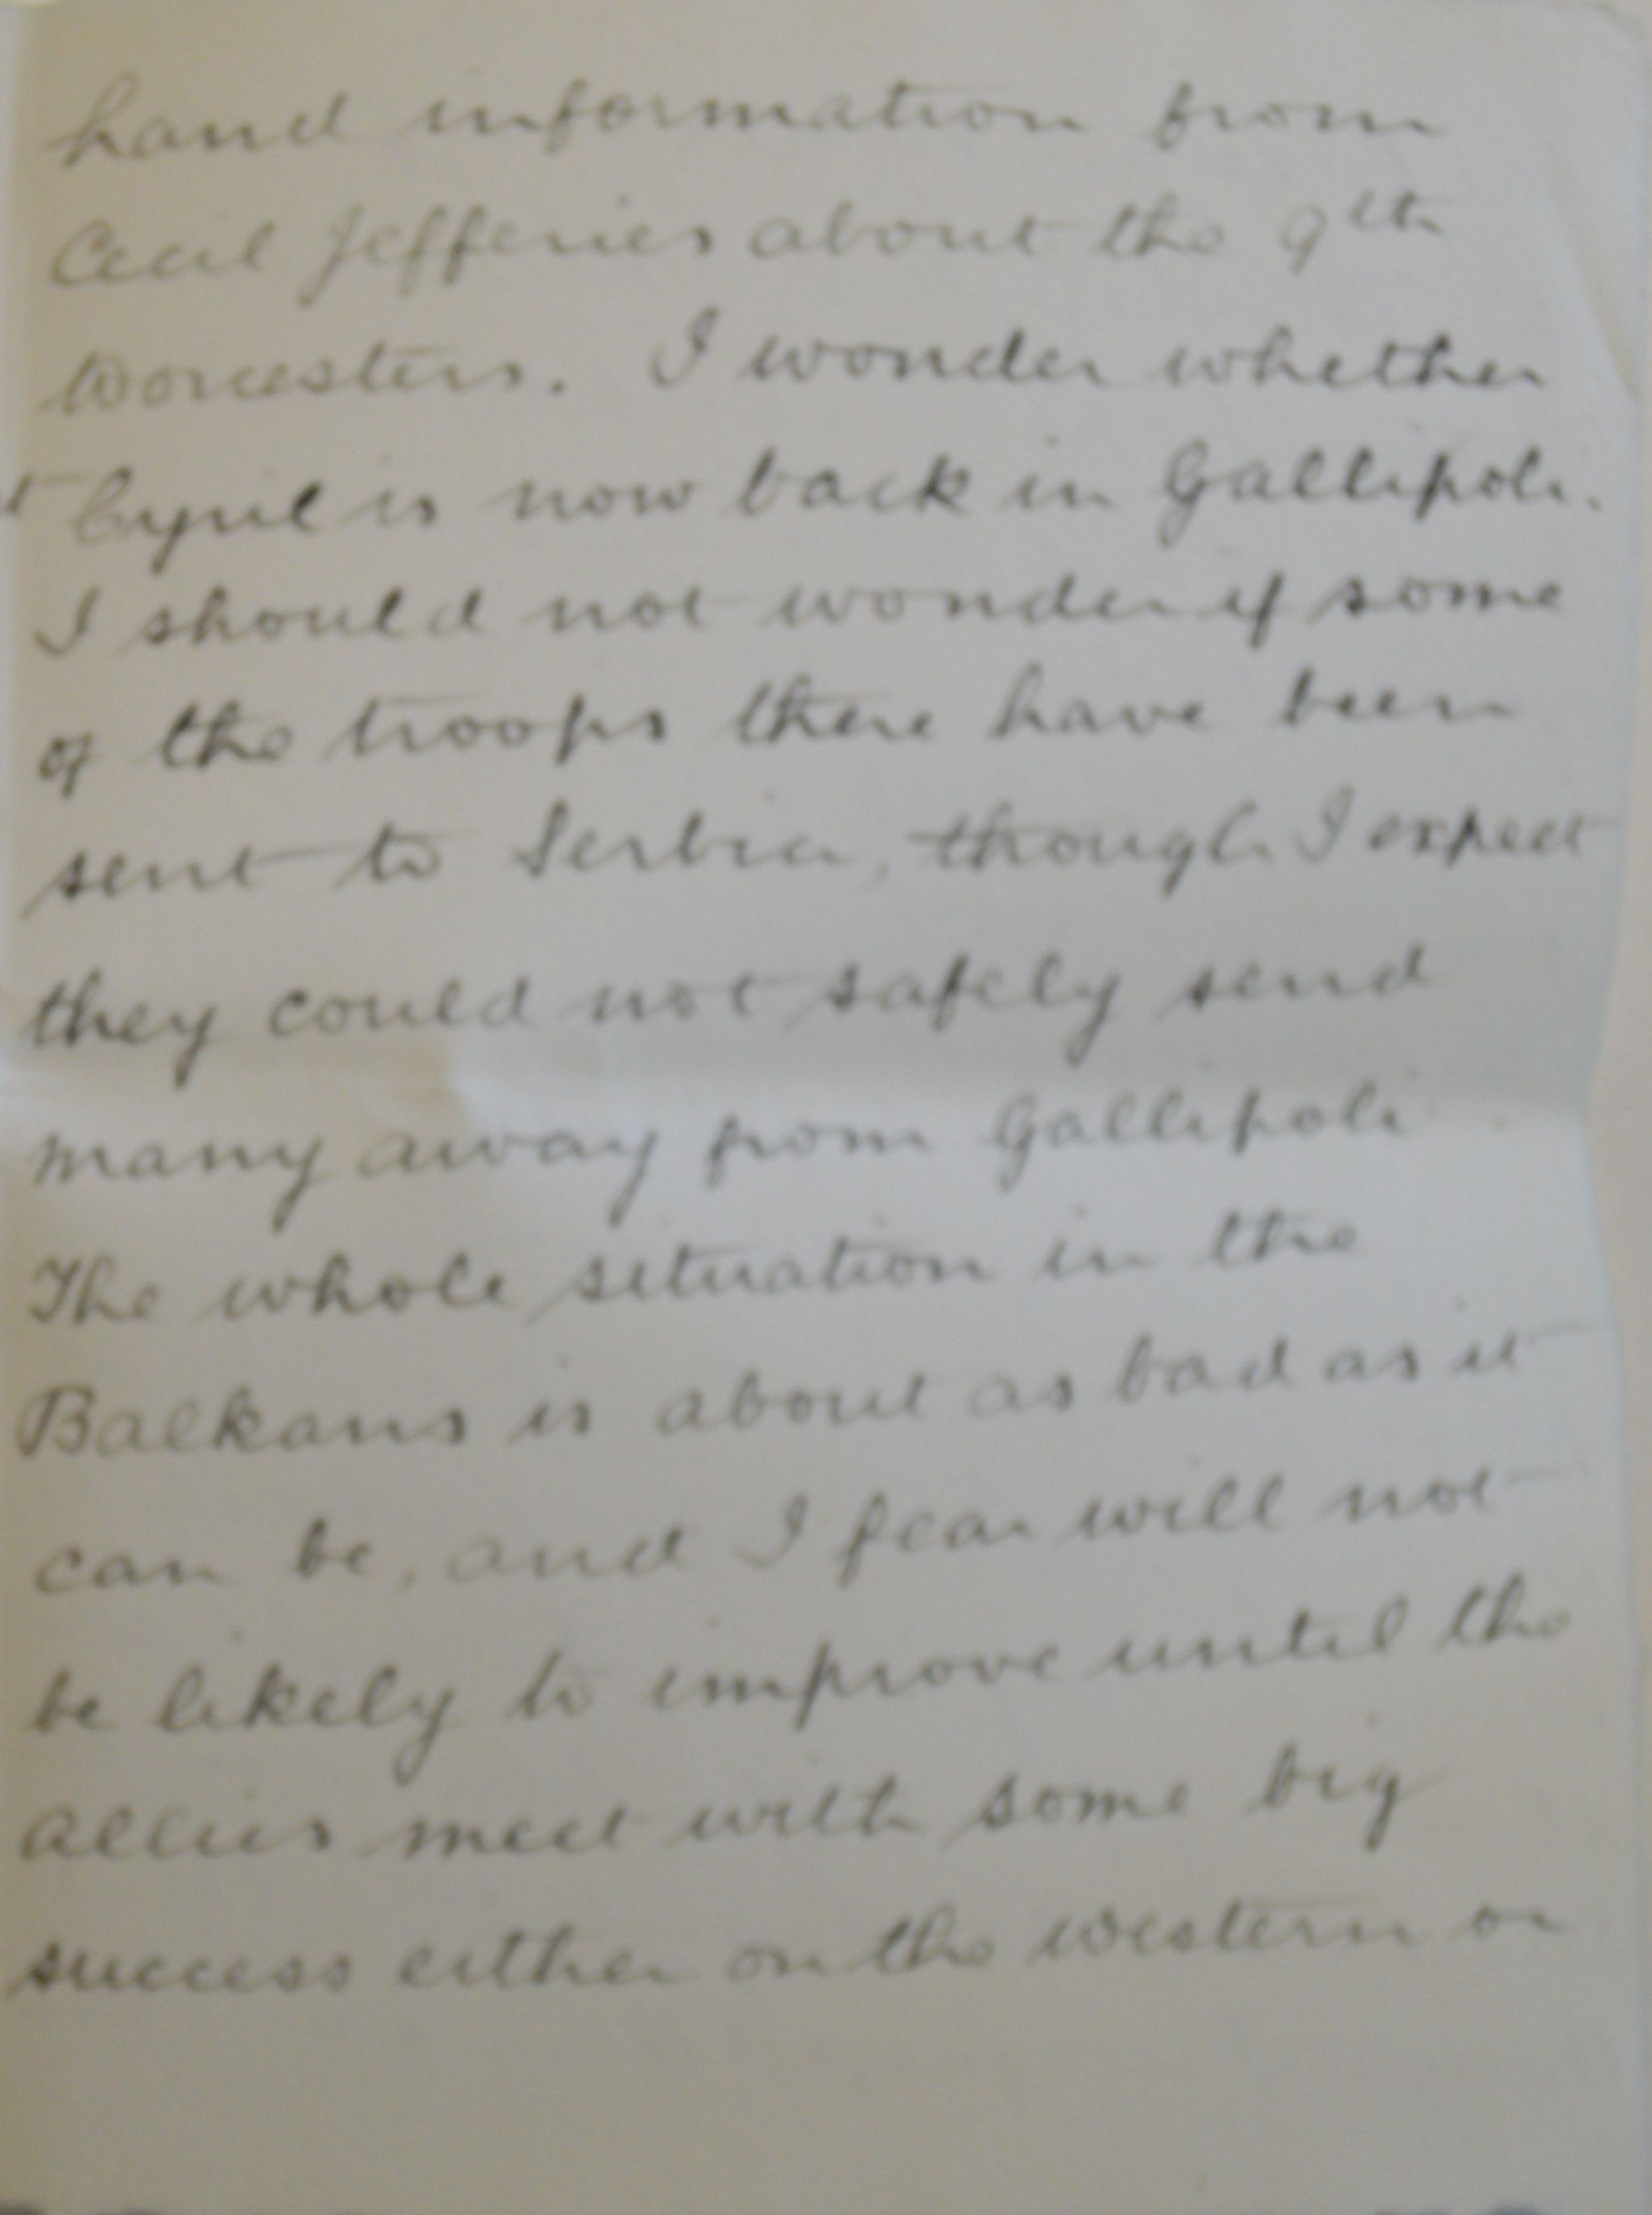 hand information from
Cecil Jefferies about the 9th
Worcesters. I wonder whether
Cyril is now back in Gallipoli.
I should not wonder if some
of the troops there have been
sent to Serbia, though I expect
they could not safely send
many away from Gallipoli.
The whole situation in the
Balkans is about as bad as it
can be, and I fear will not
be likely to improve until the
allies meet with some big
success either on the western or